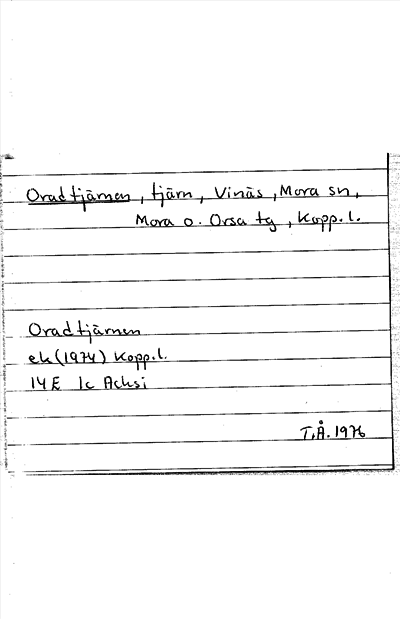 Oradtjärnen, tjärn, Vinäs, Mora sn,
Mora o. Orsa tg, Kopp.l.
Oradtjärnen
ek (1974) Kopp.l.
14E 1c Acksi
T.Å. 1976